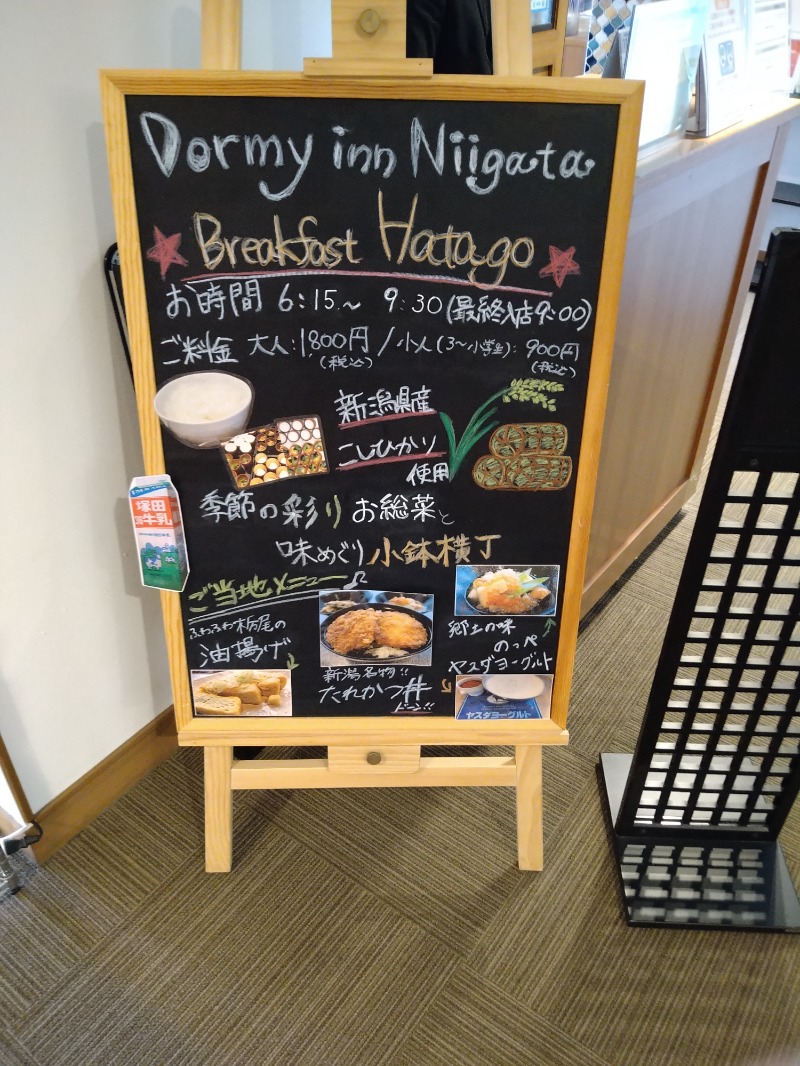 Dormy inn Niigata
Breakfast Hatago
お時間 6:15~ 9:30(最終入店9:00)
ご料金 大人:1,800円/小人(3~小学生):900円
(税込) (税込)
新潟県産
こしひかり
使用
季節の彩りお総菜と
味めぐり小鉢横丁
塚田
牛乳
ご当地メニュー
ふわふわ栃尾の
油揚げ
新潟名物!!
たれかつ丼
ドーン!!
郷土の味
のっぺ
ヤスダヨーグルト
ヤスダヨーグルト